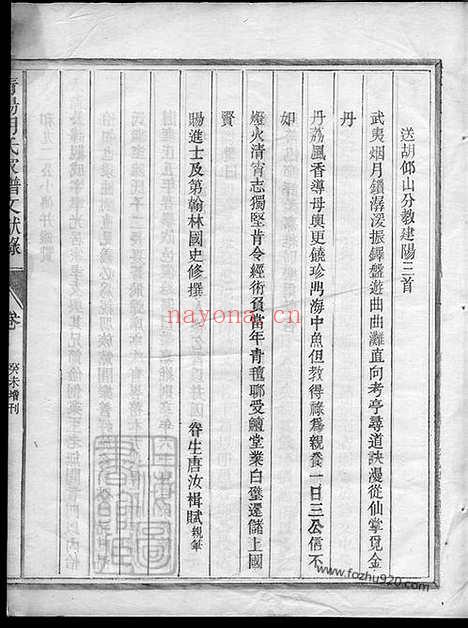 送胡邻山分教建陽三首
武夷烟月鎖潺湲振鐸盤遊曲曲灘直向考亭尋道訣漫從仙掌覓金
丹
丹荔風香導母輿更饒珍鼎海中魚但教得祿為親養一日三公信不
如
燈火清宵志獨堅昔令經術負當年青氊聊受鱣堂業白璧還儲上國
賢
賜進士及第翰林國史修撰
眷生唐汝楫賦親筆
胡氏家譜文獻錄
卷
癸未增刊
nayona.cn
www.fozhu920.com